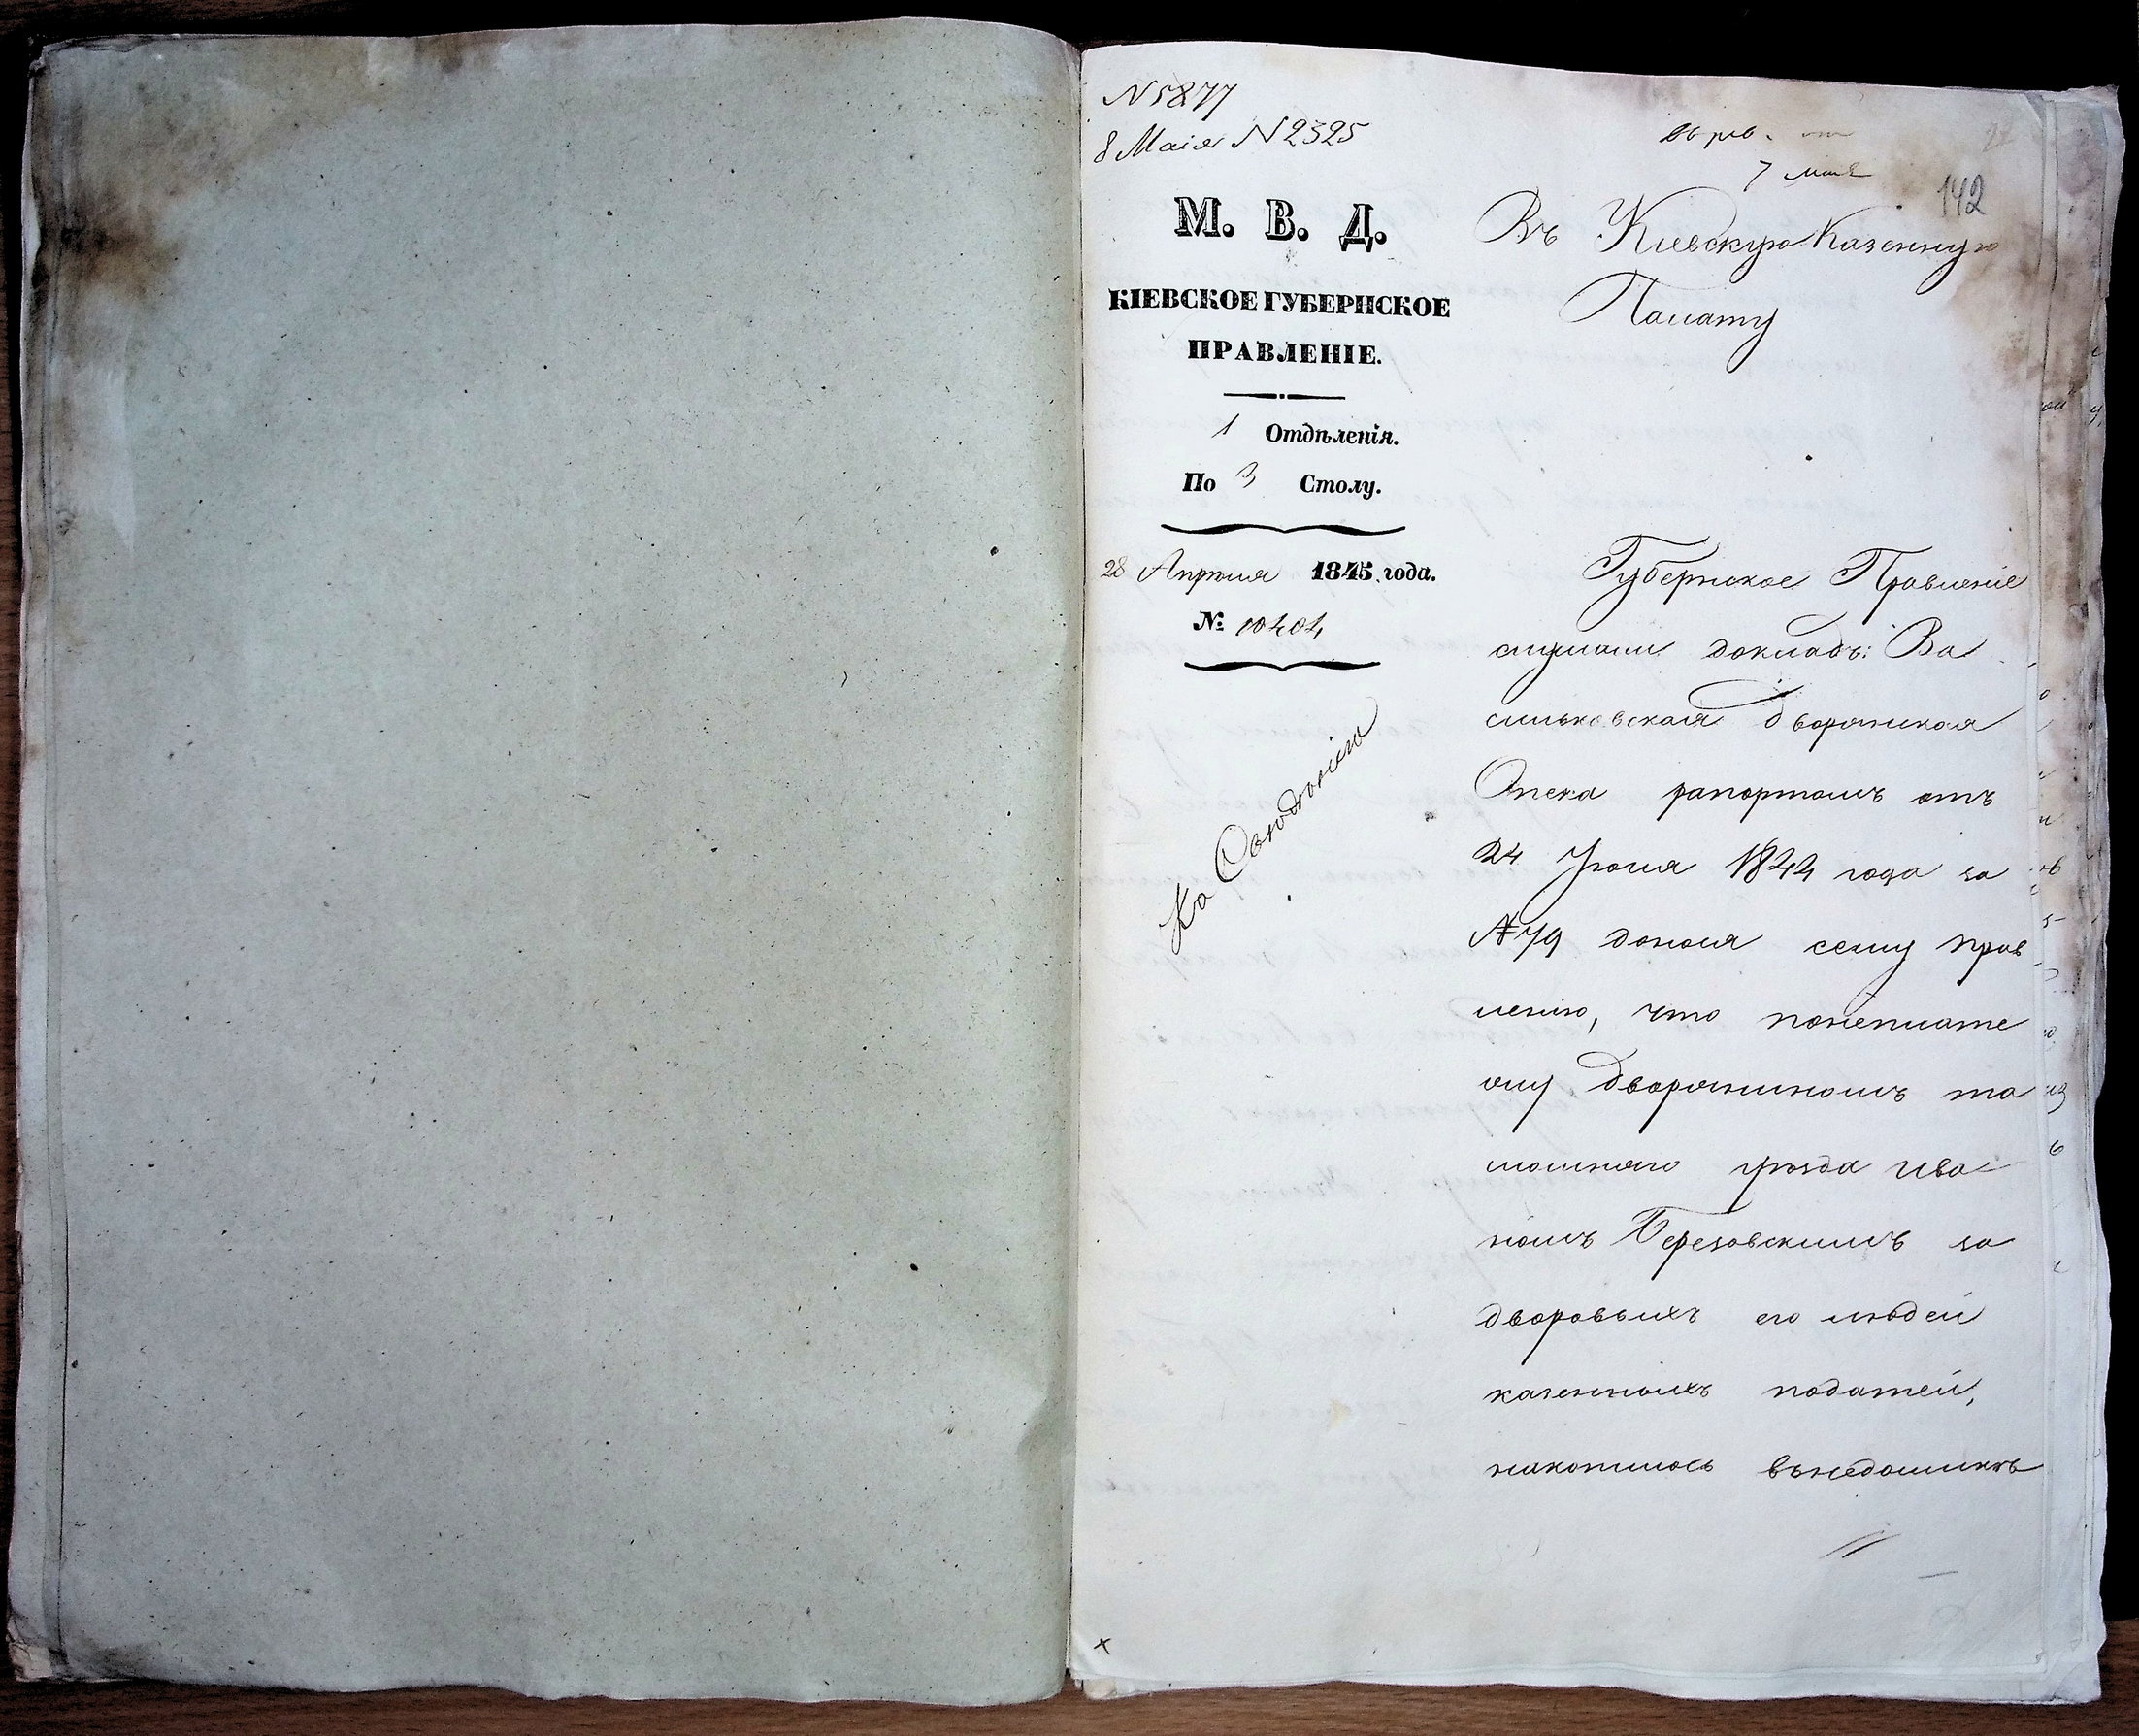 N 5877
8 Маія N 2325
7 мая
142
М. В. Д.
КІЕВСКОЕ ГУБЕРНСКОЕ
ПРАВЛЕНІЕ.
1 Отдѣленія.
По 3 Столу.
28 Апрѣля 1845 года.
№ 10404
Къ Свѣдѣнію
Въ Кіевскую Казенную
Палату
Губернское Правленіе
слушали докладъ: Ва
сильковская Дворянская
Опека рапортомъ отъ
24 Іюля 1844 года за
№ 79 донося сему прав
ленію, что понеплате
жу Дворяниномъ та
мошняго уѣзда Ива
номъ Березовскимъ за
дворовыхъ его людей
казенныхъ податей,
накопилось въ недоимкѣ